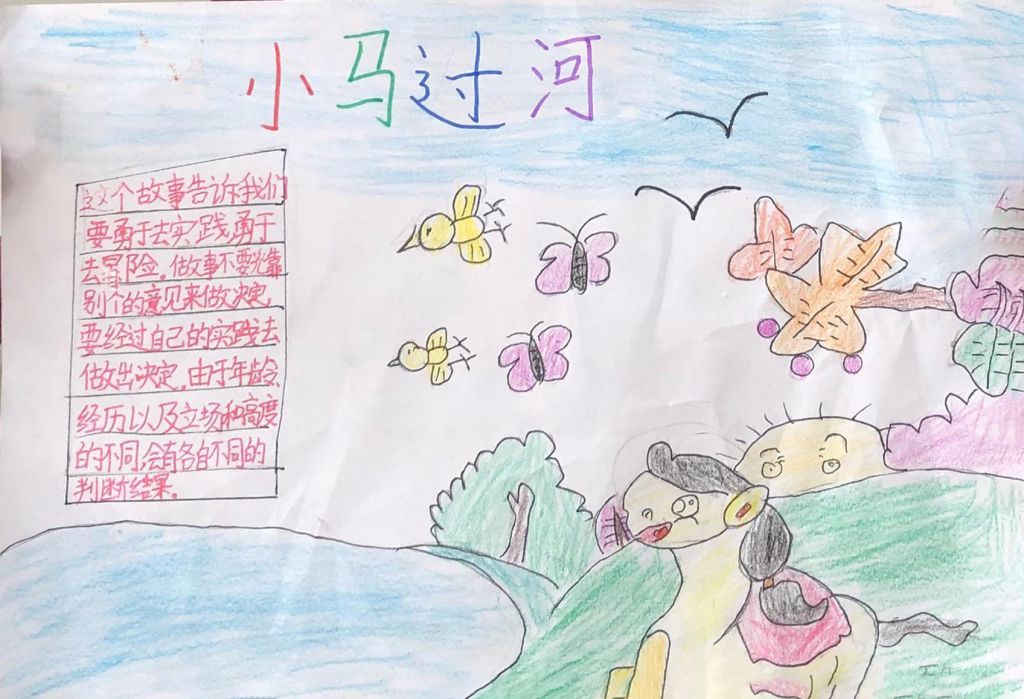 小马过河
这个故事告诉我们
要勇于去实践,勇于
去冒险。做故事不要光靠
别个的意见来做决定,
要经过自己的实践去
做出决定。由于年龄、
经历以及立场和高度
的不同,会有各自不同的
判断结果。